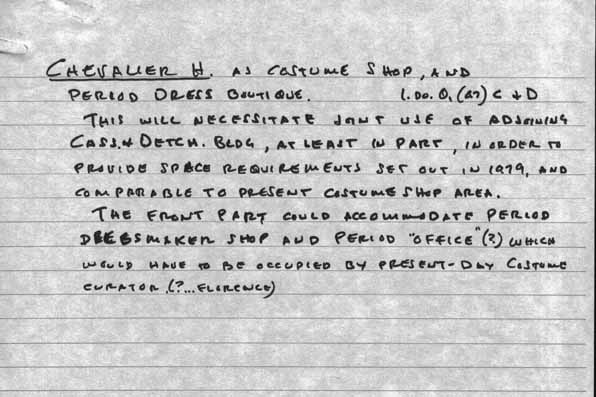 CHEVALIER H. AS COSTUME SHOP, AND
PERIOD DRESS BOUTIQUE. 1. DO. O, (A7) C + D
THIS WILL NECESSITATE JOINT USE OF ADJOINING
CASS. + DETCH. BLDG, AT LEAST IN PART, IN ORDER TO
PROVIDE SPACE REQUIREMENTS SET OUT IN 1979, AND
COMPARABLE TO PRESENT COSTUME SHOP AREA.
THE FRONT PART COULD ACCOMMODATE PERIOD
DRESSMAKER SHOP AND PERIOD "OFFICE" (?) WHICH
WOULD HAVE TO BE OCCUPIED BY PRESENT-DAY COSTUME
CURATOR (?...FLORENCE)